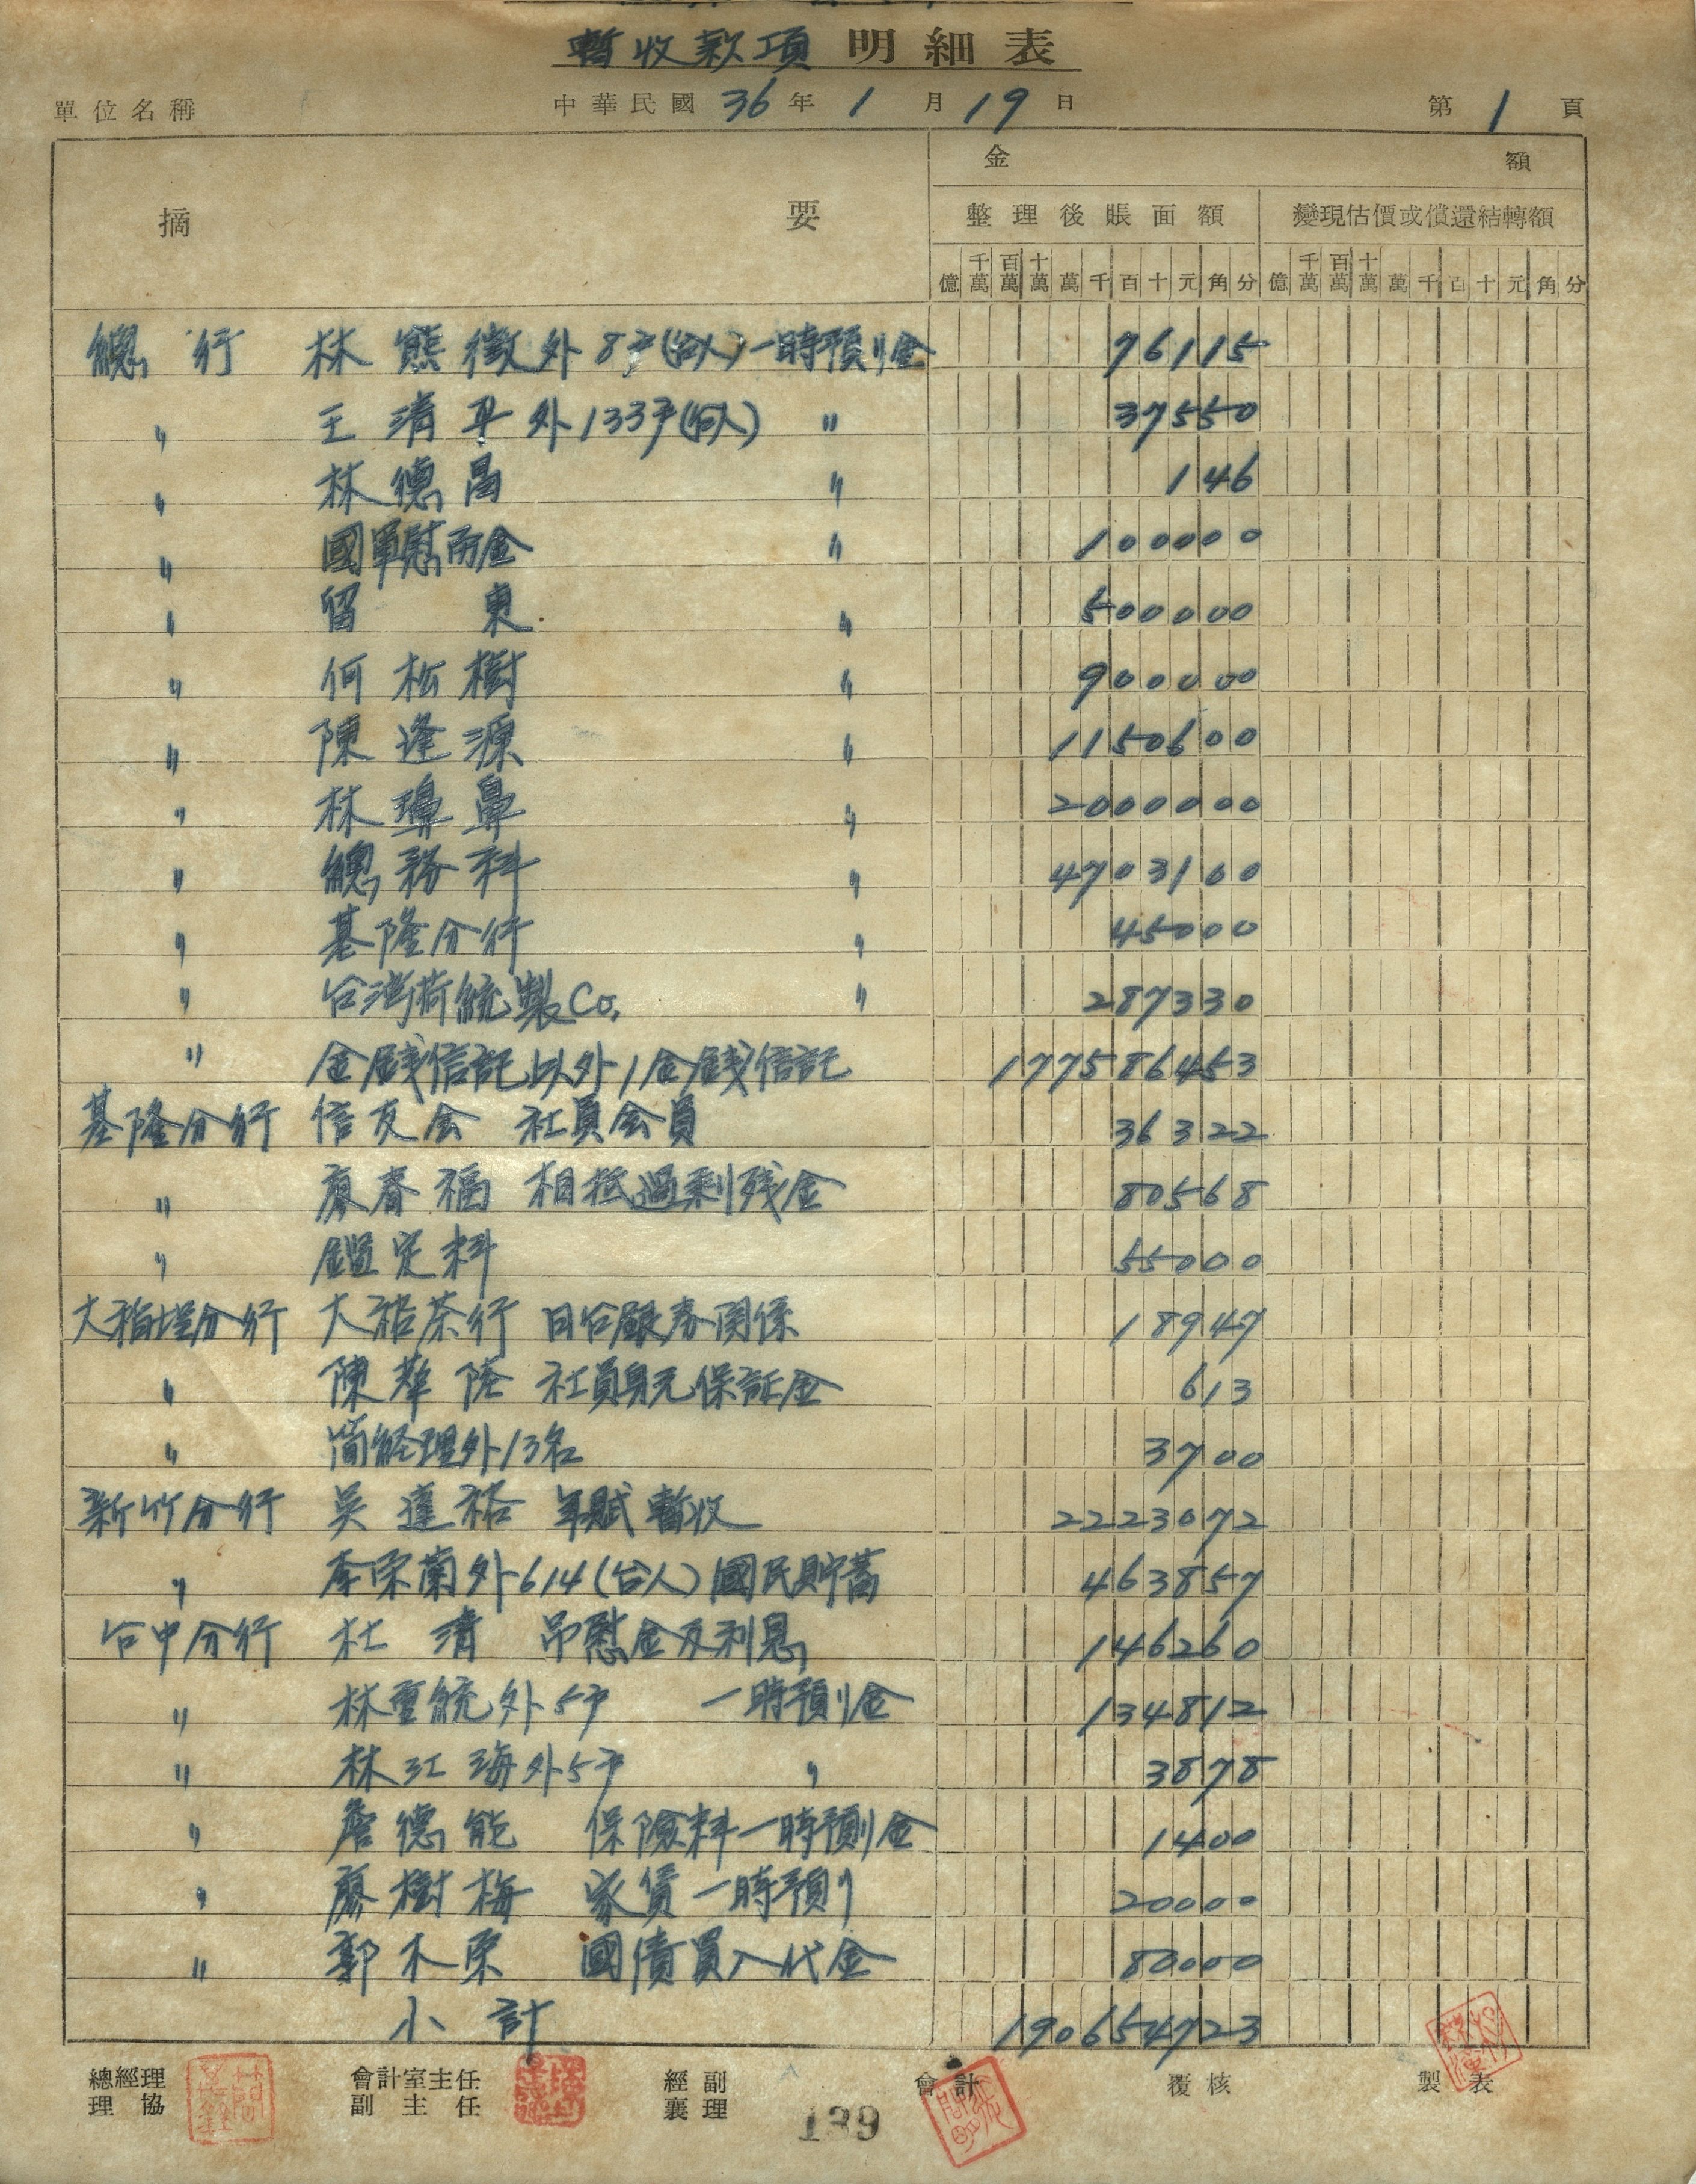 暫收款項 明細表
單位名稱 中華民國 36 年 1 月 19 日 第 1 頁
摘要 金額
整理後賬面額 變現估價或償還結轉額
億 千萬 百萬 十萬 萬 千 百 十 元 角 分 億 千萬 百萬 十萬 萬 千 百 十 元 角 分
總行 林熊徵外8戸(台人)一時預リ金 76115
〃 王清平外133戸(台人) 〃 37550
〃 林德昌 〃 146
〃 國軍慰問金 〃 100000
〃 留東 〃 500000
〃 何松樹 〃 900000
〃 陳逢源 〃 1150600
〃 林 鼻 〃 2000000
〃 總務科 〃 4703160
〃 基隆分行 〃 45000
〃 台灣荷統製Co. 〃 287330
〃 金錢信託以外ノ金錢信託 177586453
基隆分行 信友会 社員会員 36322
〃 廖春福 相抵過剩残金 80568
〃 鑑定料 55000
大稻埕分行 大裕茶行 日台銀券関係 18947
〃 陳華隆 社員身元保証金 613
〃 簡経理外13名 3700
新竹分行 吳達裕 年賦暫收 2223072
〃 李栄蘭外614(台人)國民貯蓄 463857
台中分行 杜清 吊慰金及利息 146260
〃 林重統外5戸 一時預リ金 134812
〃 林江海外5戸 〃 3878
〃 詹德能 保險料一時預リ金 1400
〃 廖樹梅 家賃一時預リ 20000
〃 郭木栄 國債買入代金 80000
小計 190654723
總經理 會計室主任 經副 會計 覆核 製表
理協 副主任 襄理
139